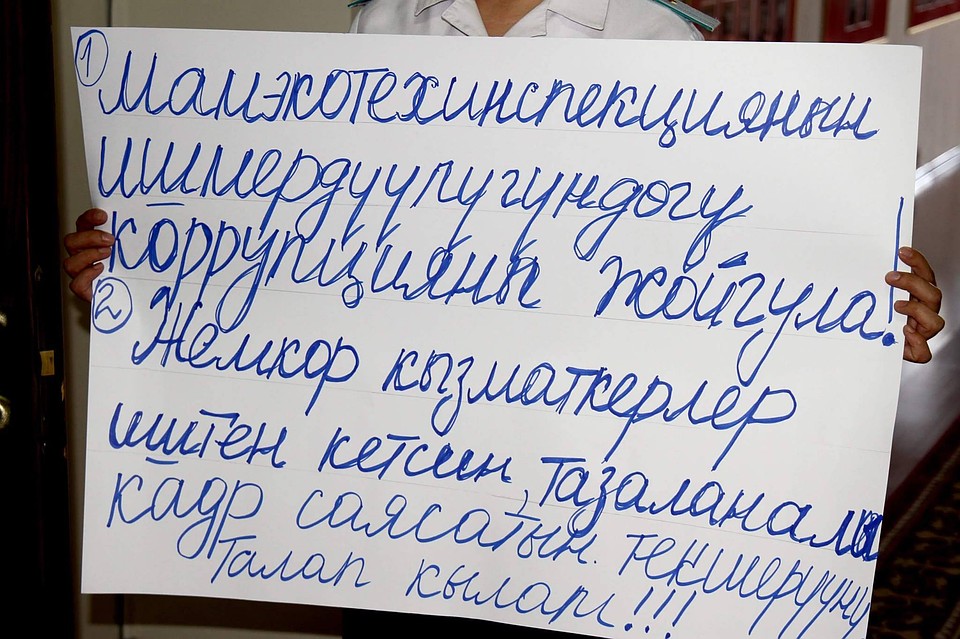 1 Мамэкотехинспекциянын
ишмердүүлүгүндөгү
коррупцияны жойгула!
2 Жемкор кызматкерлер
иштен кетсин, тазаланалы
кадр саясатын текшерүүнү
талап кылам!!!